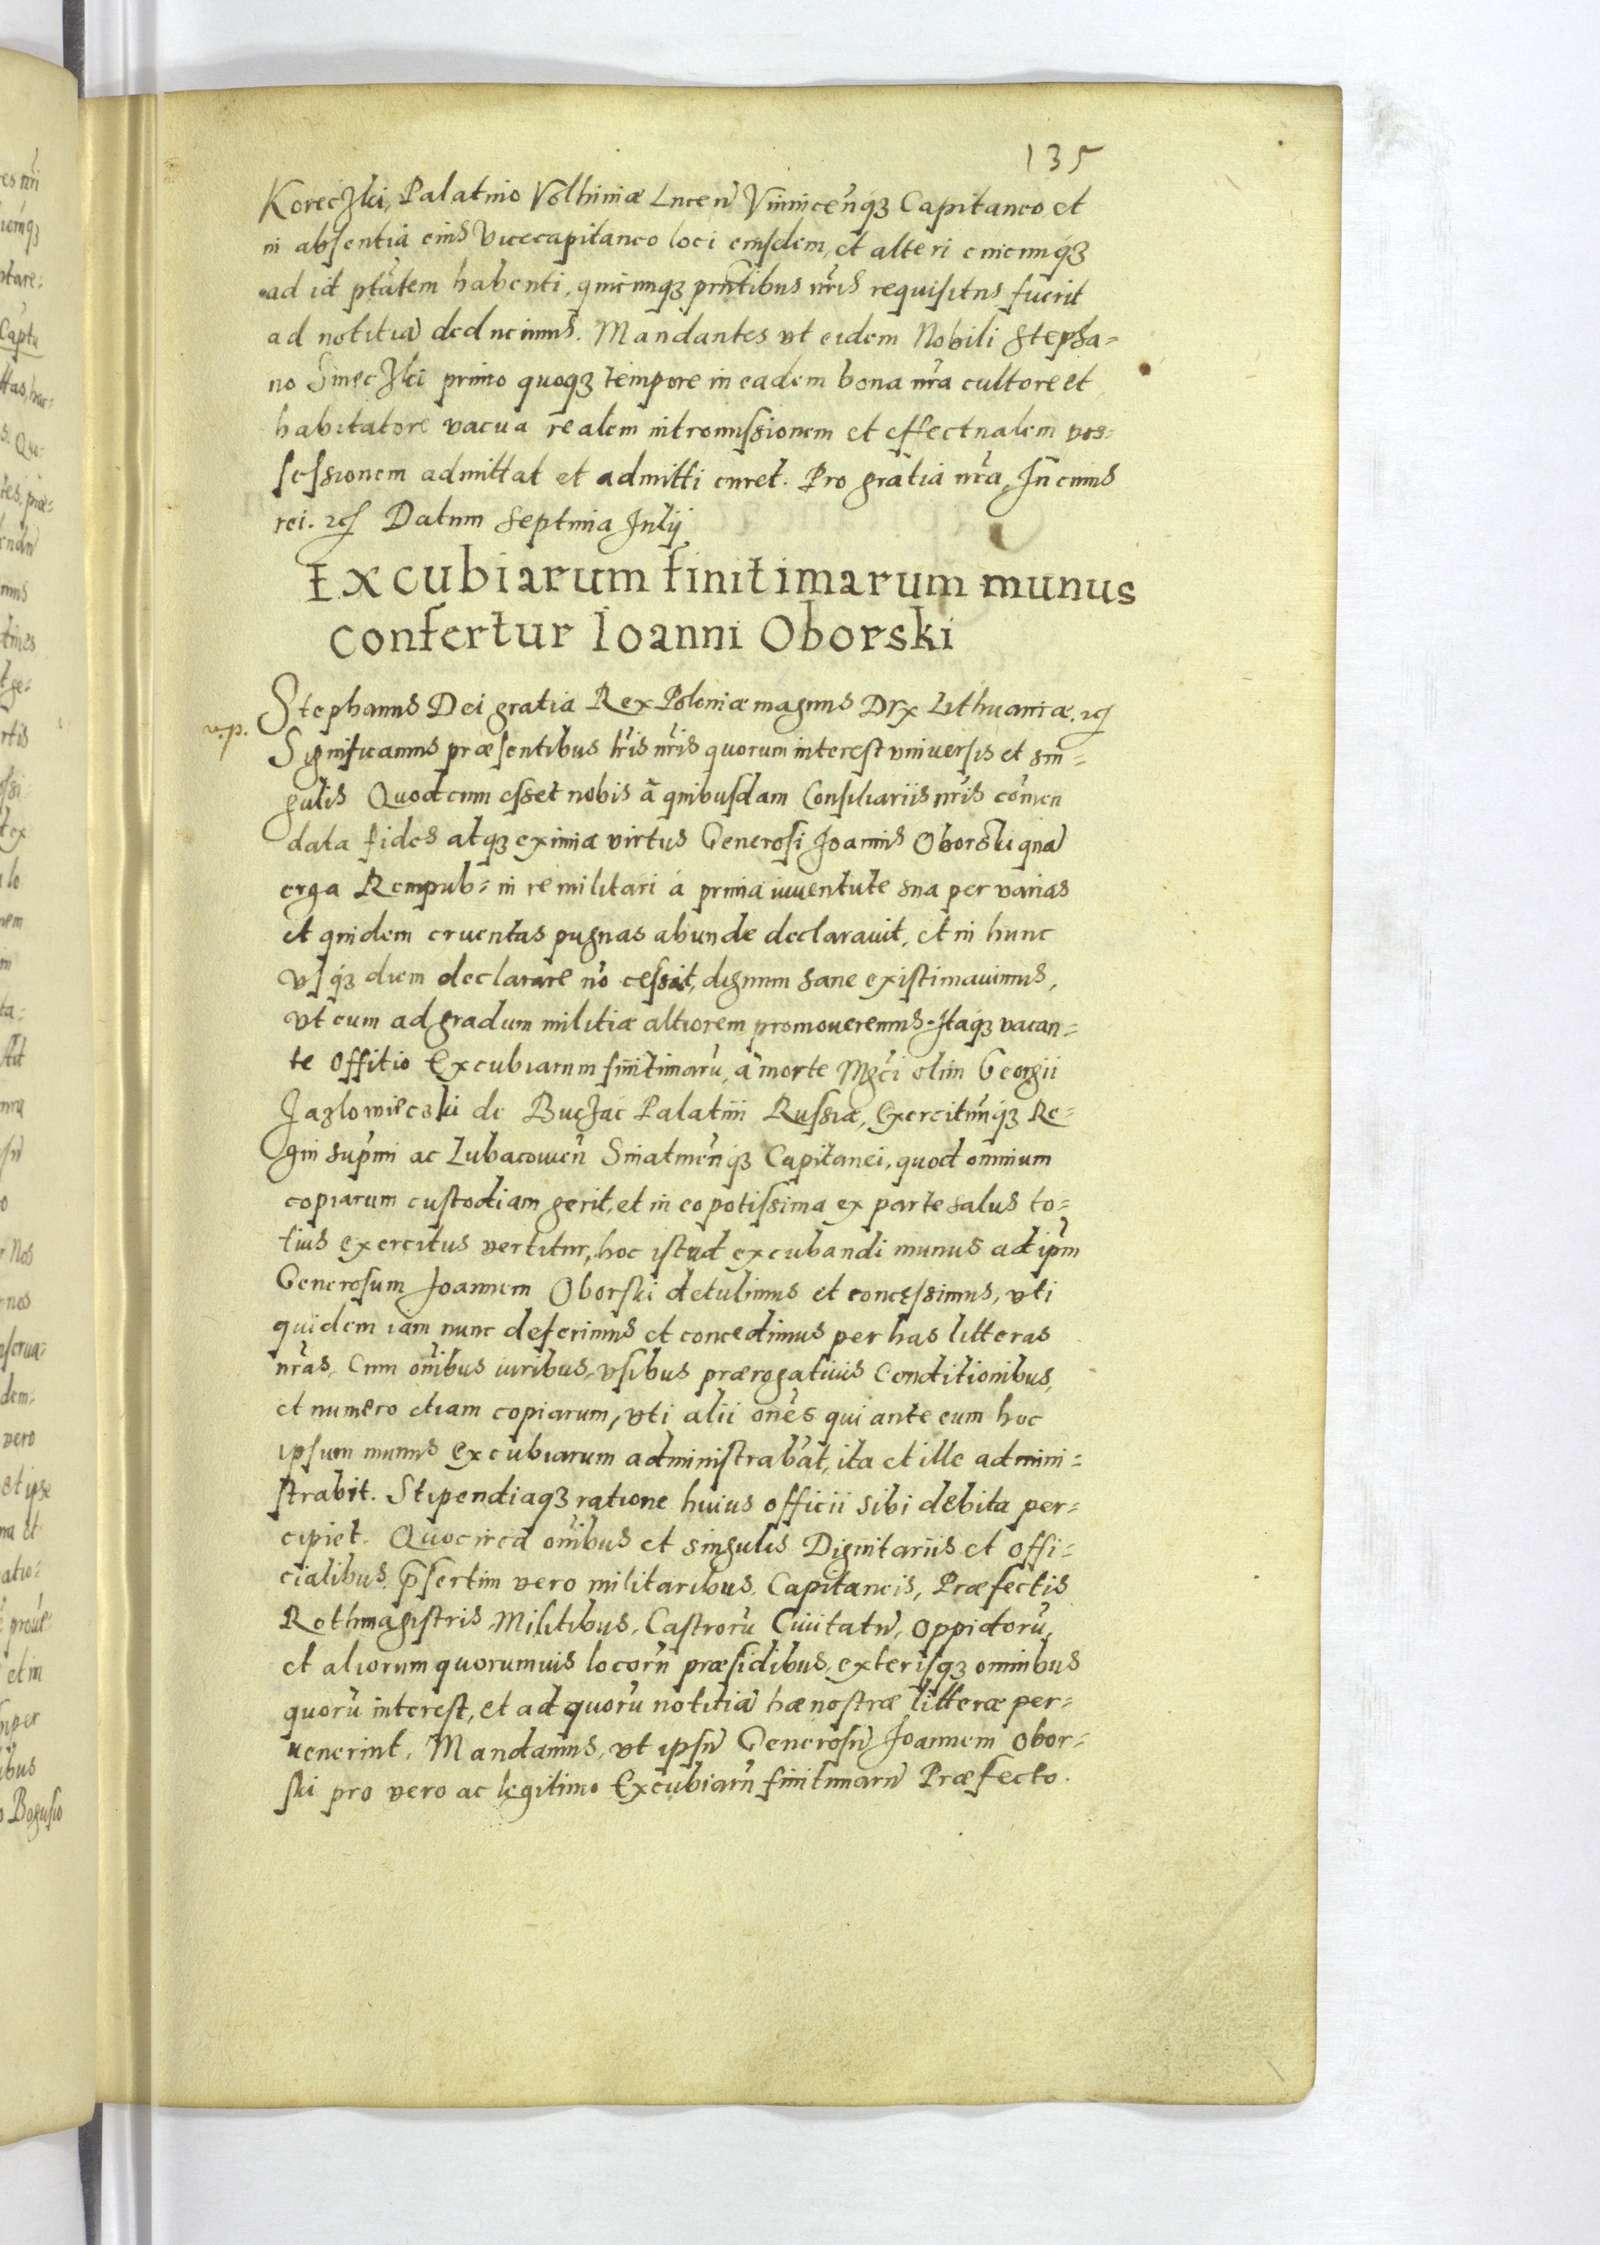 135
Koreczki, Palatino Volhiniæ Lucen̄ Vinnicen̄q₃ Capitaneo et
in absentia eius Vicecapitaneo loci eiusdem, et alteri cuicunq₃
ad id ptãtem habenti, quicunq₃ prñtibus nr̃is requisitus fuerit
ad notitiã deducimus. Mandantes vt eidem Nobili Stepha=
no Sineczki primo quoq₃ tempore in eadem bona nr̃a cultore et
habitatore vacua realem intromissionem et effectualem pos=
sessionem admittat et admitti curet. Pro gratia nr̃a, In cuius
rei. ꝛc̃ Datum Septima Julij
Excubiarum finitimarum munus
confertur Ioanni Oborski
v.p.
Stephanus Dei gratia Rex Poloniæ magnus Dvx Lithuaniæ. ꝛc̃
Significamus præsentibus lr̃is nr̃is quorum interest vniuersis et sin=
gulis Quod cum esset nobis à quibusdam Consiliariis nr̃is com̃en
data fides atq₃ eximia virtus Generosi Joannis Oborski quã
erga Rempub= in re militari à prima iuuentute sua per varias
et quidem cruentas pugnas abunde declarauit, et in hunc
vsq₃ diem declarare nõ cessat, dignum sane existimauimus,
vt eum ad gradum militiæ altiorem promoueremus. Itaq₃ vacan=
te offitio Excubiarum finitimarũ, à morte Mgc̃i olim Georgii
Jazlowiecski de Buczac Palatini Russiæ, Exercituũq₃ Re=
gni sup̃mi ac Lubacouien̄ Sniatinen̄q₃ Capitanei, quod omnium
copiarum custodiam gerit, et in eo potissima ex parte salus to=
tius exercitus vertitur, hoc istud excubandi munus ad ip̃m
Generosum Joannem Oborski detulimus et concessimus, vti
quidem iam nunc deferimus et concedimus per has litteras
nr̃as, Cum om̃ibus iuribus, vsibus prærogatiuis Conditionibus,
et numero etiam copiarum, vti alii om̃es qui ante eum hoc
ipsum munus excubiarum administrabãt, ita et ille admini=
strabit. Stipendiaq₃ ratione huius officii sibi debita per=
cipiet. Quocirca om̃ibus et singulis Dignitariis et offi=
cialibus p̃sertim vero militaribus, Capitaneis, Præfectis
Rothmagistris, Militibus, Castrorũ Ciuitatũ, Oppidorũ,
et aliorum quorumuis locorũ præsidibus, exterisq₃ omnibus
quorũ interest, et ad quorũ notitiã hæ nostræ litteræ per=
uenerint, Mandamus, vt ipsũ Generosũ Joannem Obor=
ski pro vero ac legitimo Excubiarũ finitimarũ Præfecto.